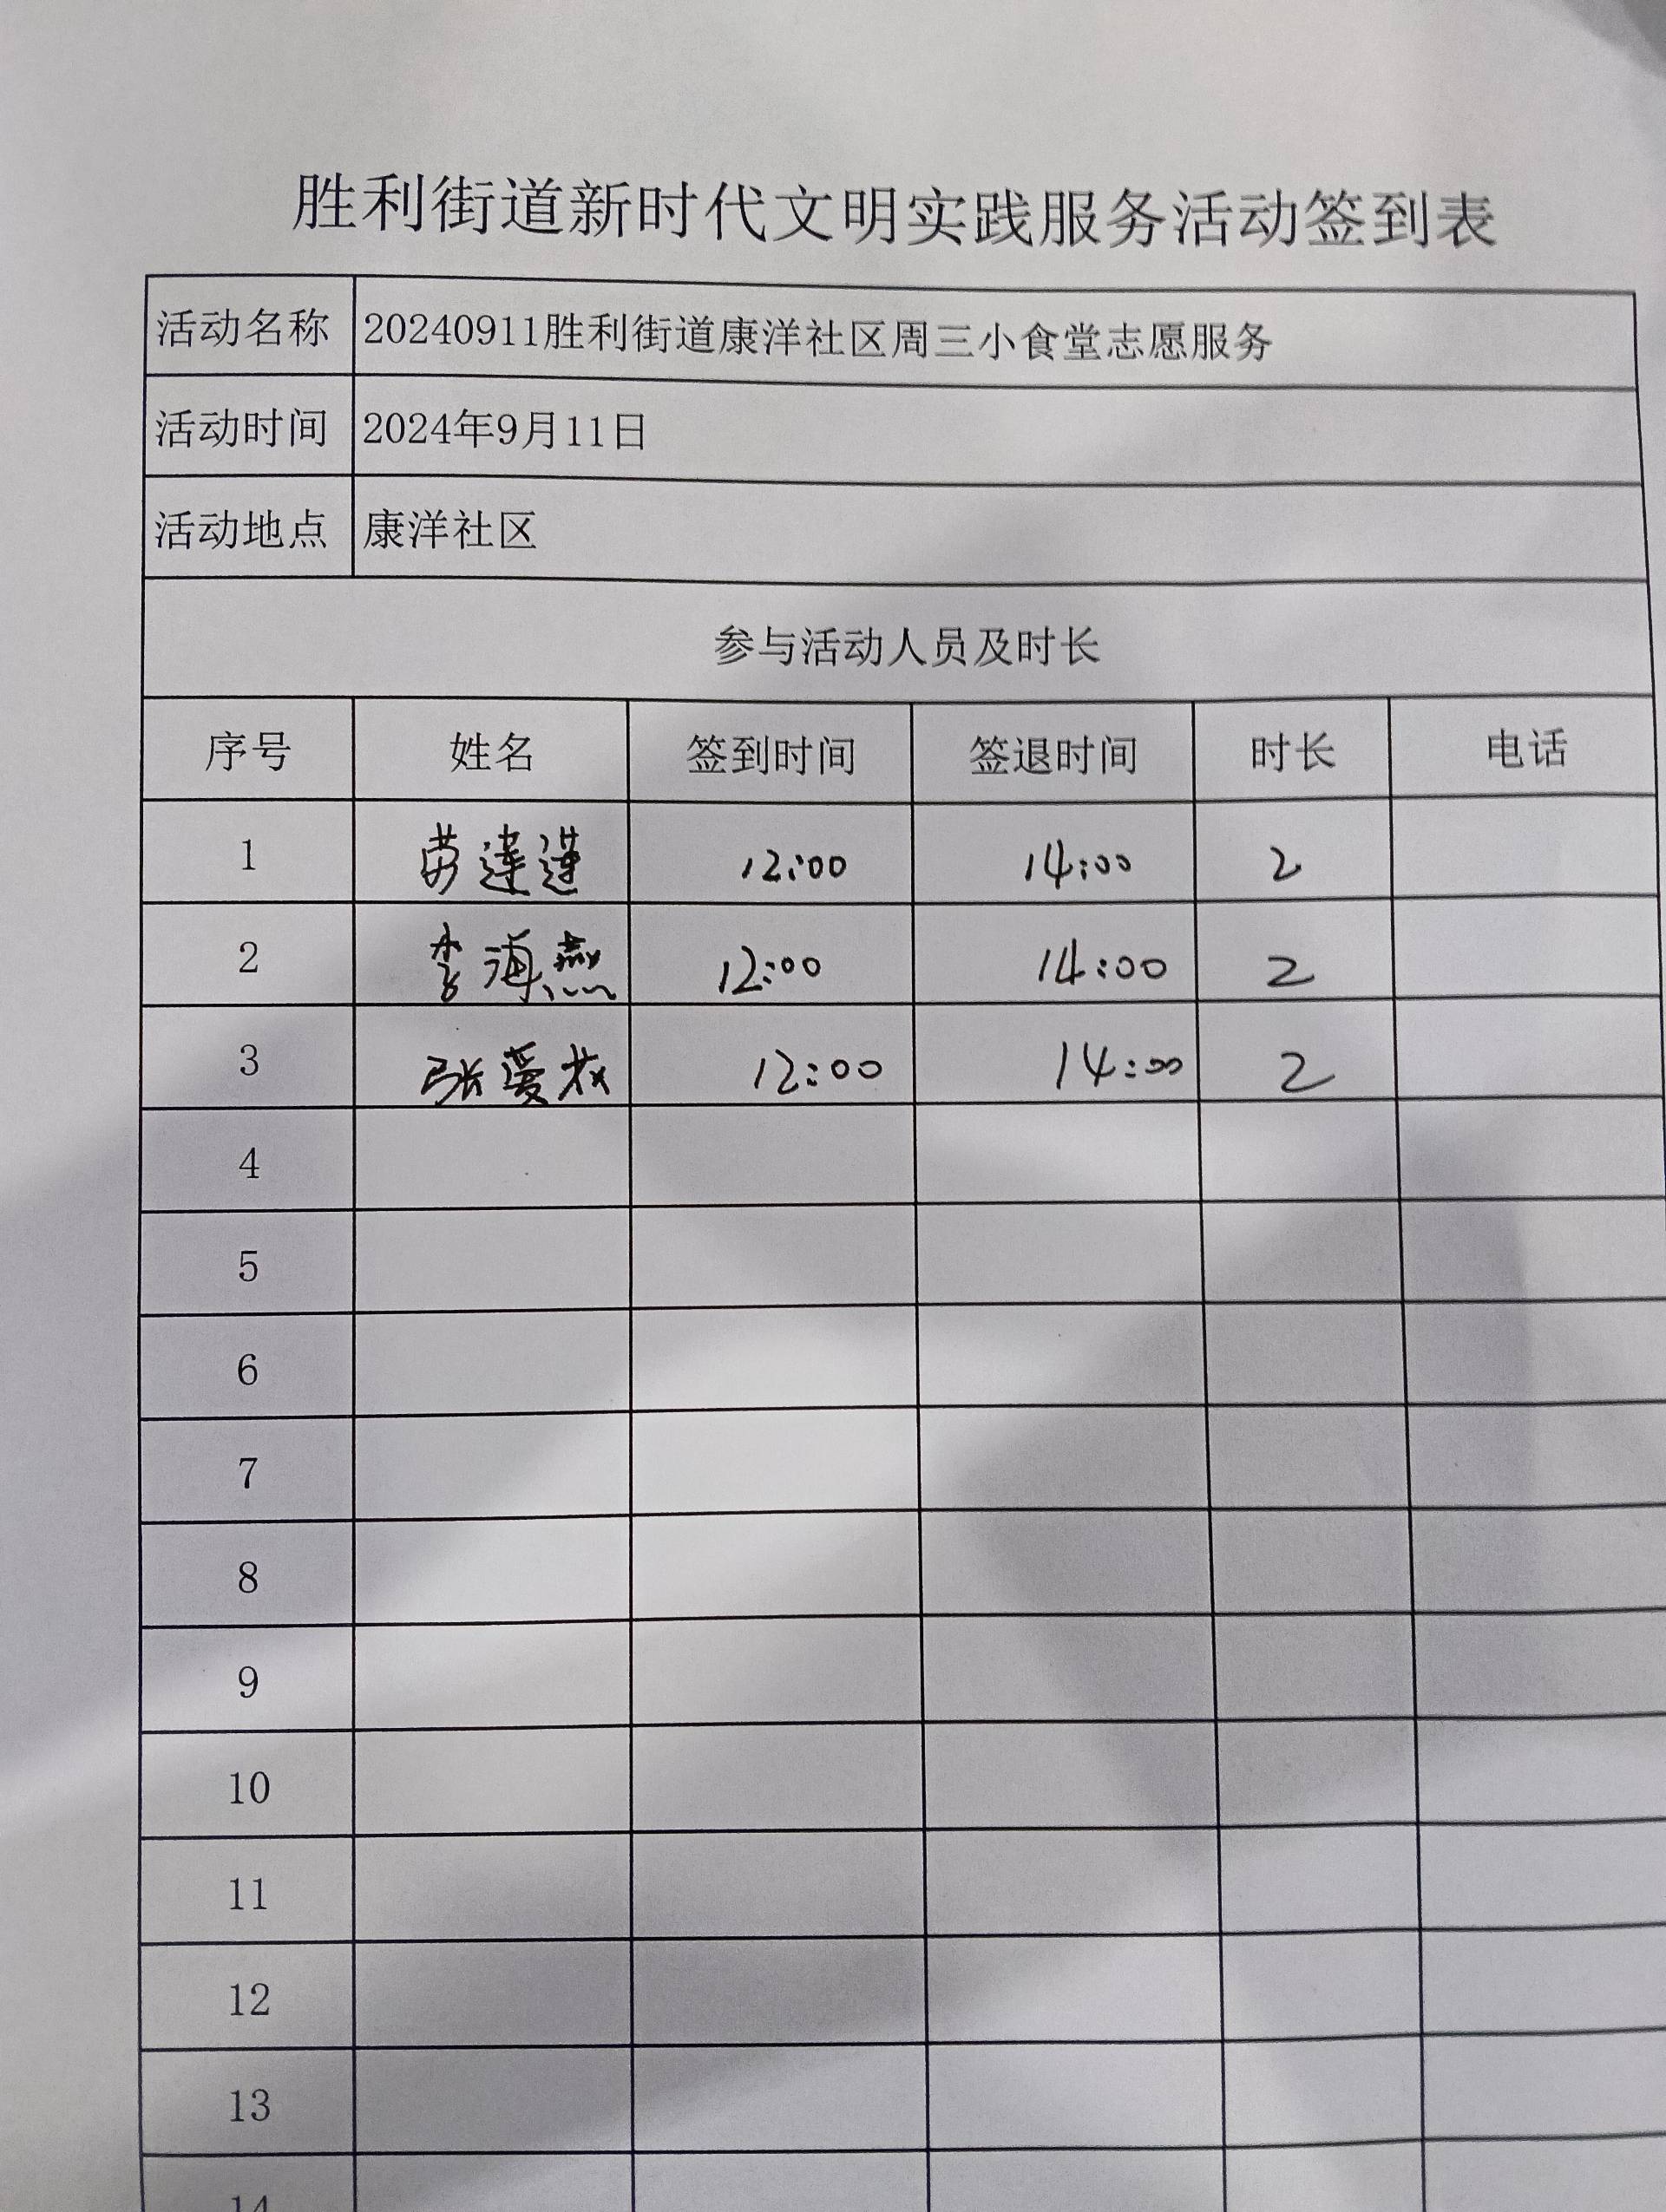 胜利街道新时代文明实践服务活动签到表
活动名称 20240911胜利街道康洋社区周三小食堂志愿服务
活动时间 2024年9月11日
活动地点 康洋社区
参与活动人员及时长
序号 姓名 签到时间 签退时间 时长 电话
1 12:00 14:00 2
2 李海燕 12:00 14:00 2
3 张爱 12:00 14:00 2
4
5
6
7
8
9
10
11
12
13
14